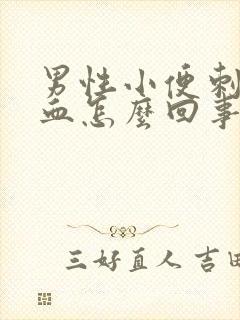 男性小便刺
血怎麽回事
三好直人 吉田